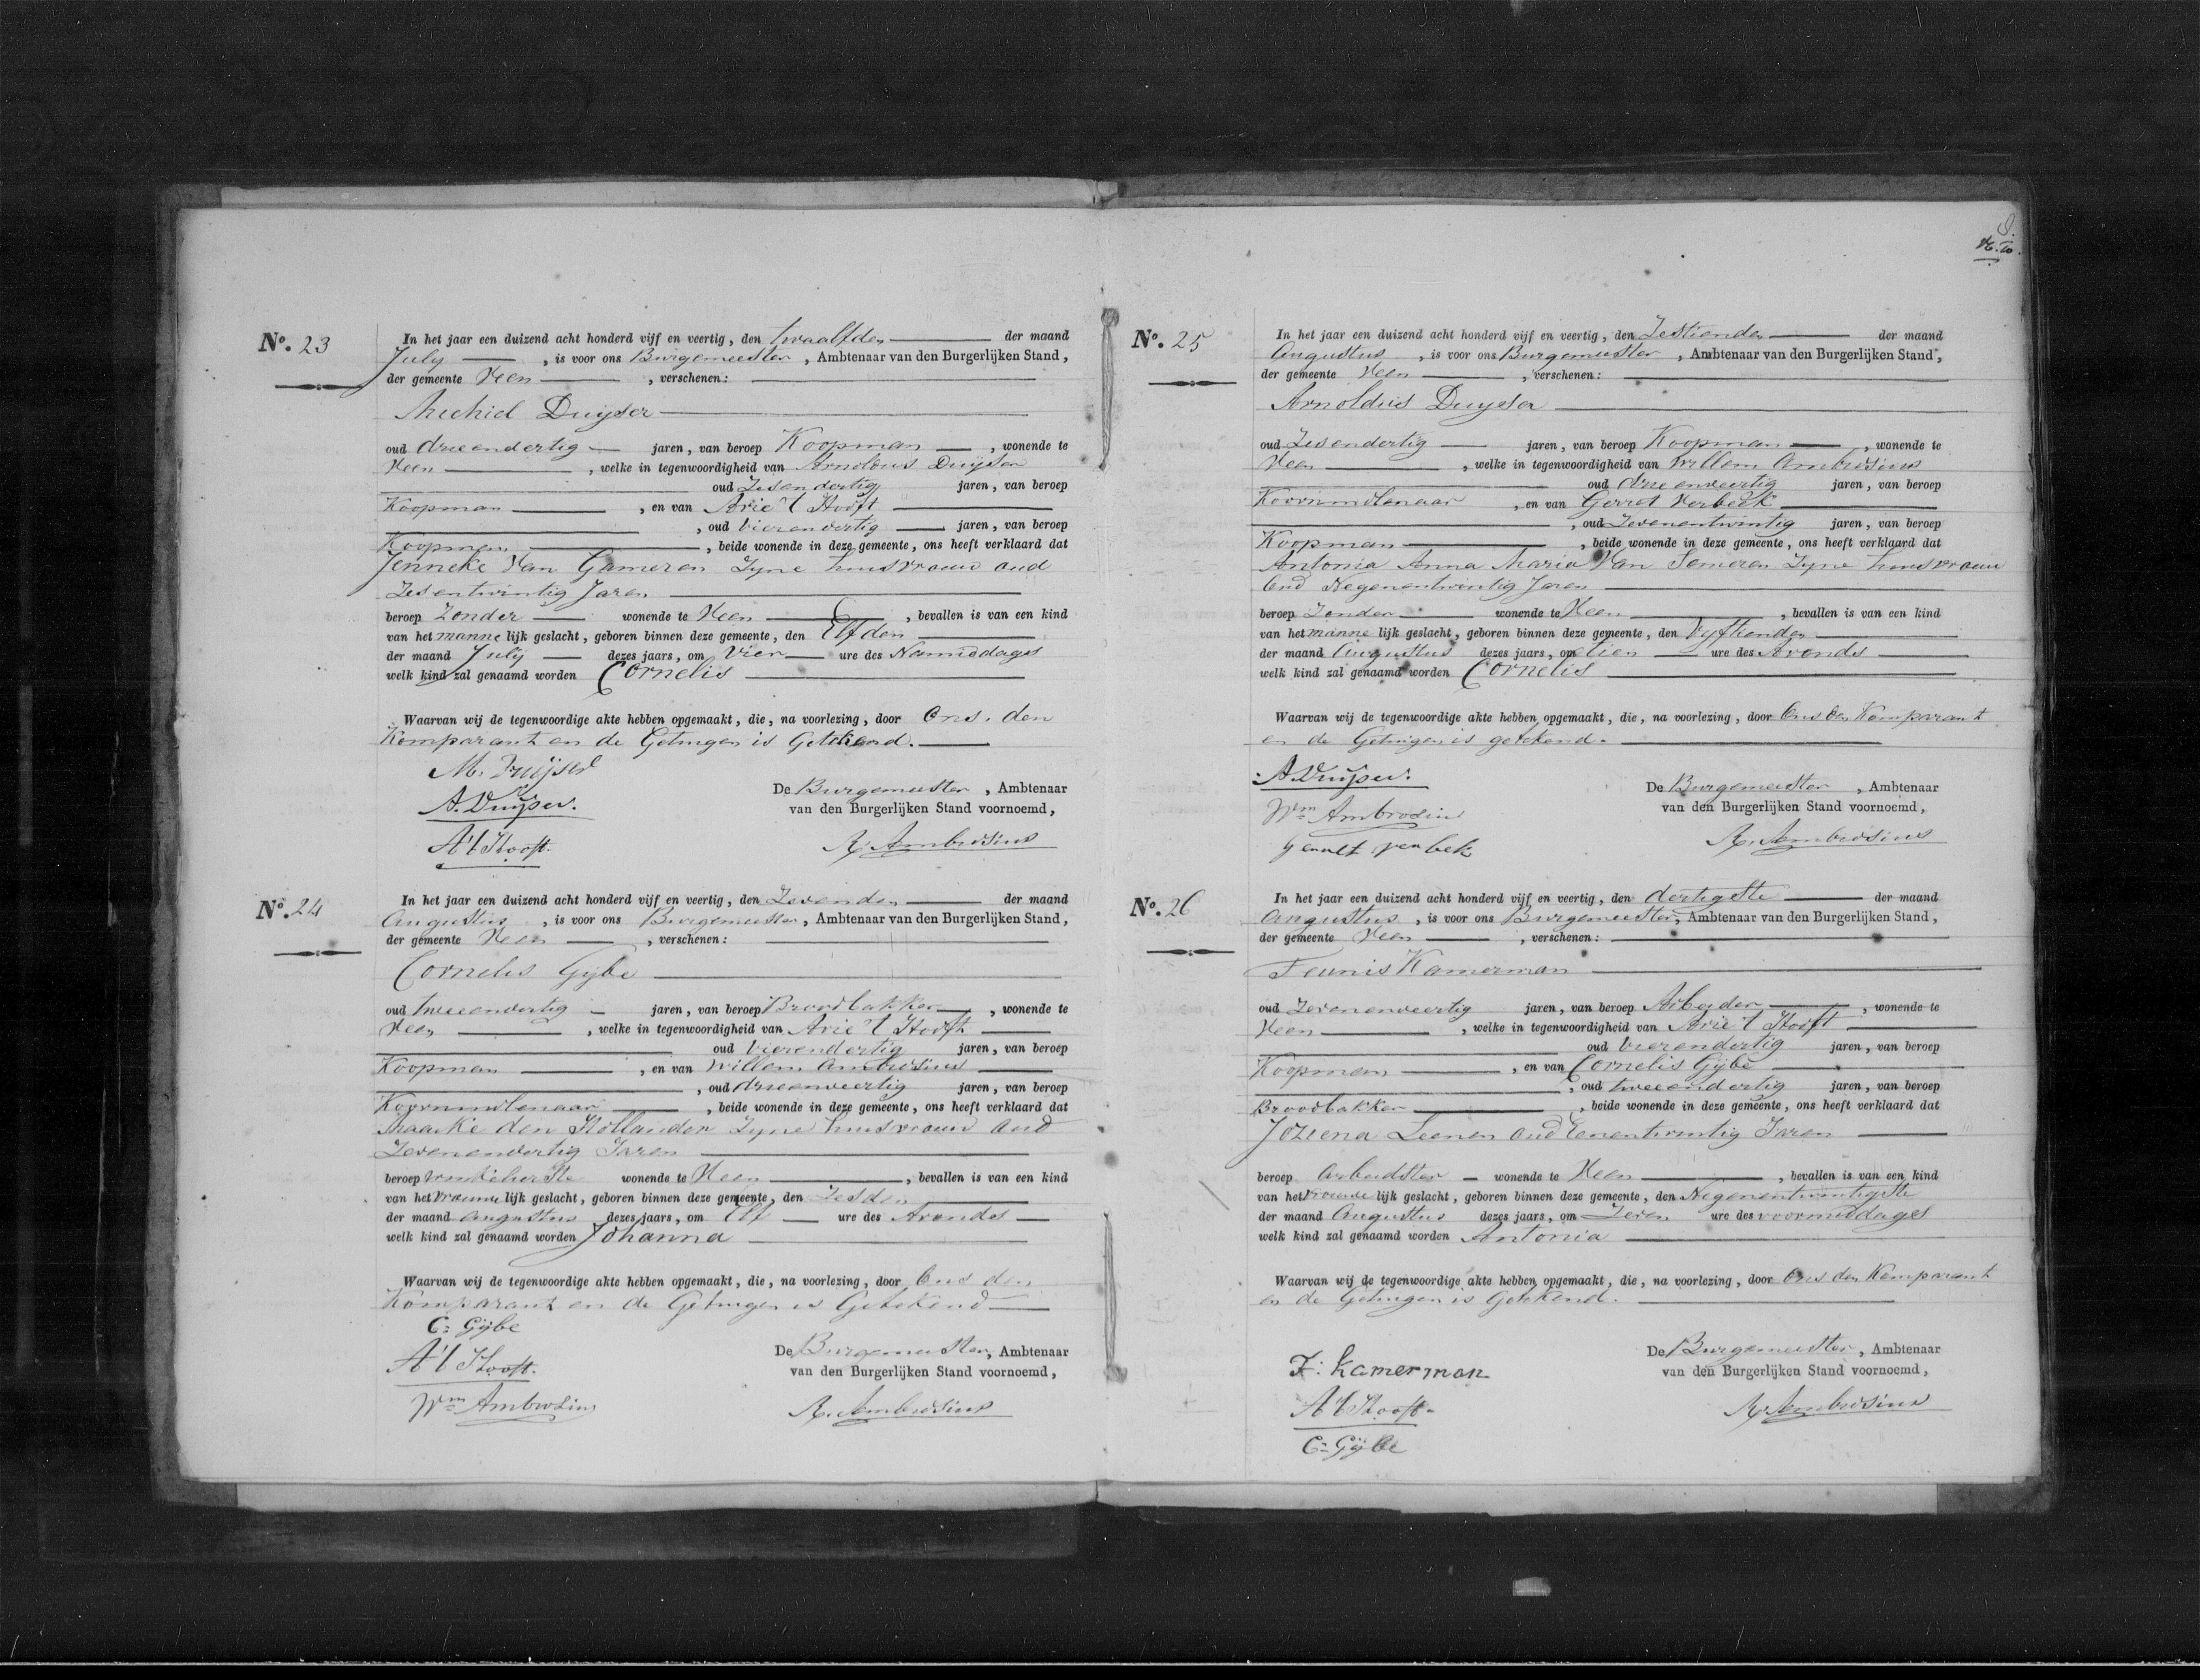 No. 23
In het jaar een duizend acht honderd vijf en veertig, den twaalfden der maand
July, is voor ons Burgemeester, Ambtenaar van den Burgerlijken Stand,
der gemeente Veen, verschenen:
Michiel Duijser
oud drieendertig jaren, van beroep Koopman, wonende te
Veen, welke in tegenwoordigheid van Arnoldus Duijser
oud Zesendertig jaren, van beroep
Koopman, en van Arie 't Hooft
, oud vierendertig jaren, van beroep
Koopman, beide wonende in deze gemeente, ons heeft verklaard dat
Jenneke Van Gameren Zyne huisvrouw oud
Zesentwintig Jaren
beroep Zonder wonende te Veen, bevallen is van een kind
van het mannelijk geslacht, geboren binnen deze gemeente, den Elfden
der maand July dezes jaars, om Vier ure des Namiddags
welk kind zal genaamd worden Cornelis
Waarvan wij de tegenwoordige akte hebben opgemaakt, die, na voorlezing, door Ons. den
Komparant en de Getuigen is Getekend.
M. Duijser
A. Duijser.
A 't Hooft.
De Burgemeester, Ambtenaar
van den Burgerlijken Stand voornoemd,
A. Ambrosius
No. 24
In het jaar een duizend acht honderd vijf en veertig, den Zevenden der maand
Augustus, is voor ons Burgemeester, Ambtenaar van den Burgerlijken Stand,
der gemeente Veen, verschenen:
Cornelis Gijbe
oud tweeendertig jaren, van beroep Broodbakker, wonende te
Veen, welke in tegenwoordigheid van Arie 't Hooft
oud vierendertig jaren, van beroep
Koopman, en van Willem Ambrosius
, oud drieenveertig jaren, van beroep
Koornmolenaar, beide wonende in deze gemeente, ons heeft verklaard dat
Maaike den Hollander Zyne huisvrouw oud
Zevenendertig Jaren
beroep Winkelierste wonende te Veen, bevallen is van een kind
van het Vrouwelijk geslacht, geboren binnen deze gemeente, den Zesden
der maand augustus dezes jaars, om Elf ure des Avonds
welk kind zal genaamd worden Johanna
Waarvan wij de tegenwoordige akte hebben opgemaakt, die, na voorlezing, door Ons den
Komparant en de Getuigen is Getekend
C: Gijbe
A 't Hooft.
Wm Ambrosius
De Burgemeester, Ambtenaar
van den Burgerlijken Stand voornoemd,
A. Ambrosius
No. 25
In het jaar een duizend acht honderd vijf en veertig, den Zestienden der maand
Augustus, is voor ons Burgemeester, Ambtenaar van den Burgerlijken Stand,
der gemeente Veen, verschenen:
Arnoldus Duijser
oud Zesendertig jaren, van beroep Koopman, wonende te
Veen, welke in tegenwoordigheid van Willem Ambrosius
oud drieenveertig jaren, van beroep
Koornmolenaar, en van Gerret Verbeek
, oud Zevenentwintig jaren, van beroep
Koopman, beide wonende in deze gemeente, ons heeft verklaard dat
Antonia Anna Maria Van Someren Zyne huisvrouw
oud Negenentwintig Jaren
beroep Zonder wonende te Veen, bevallen is van een kind
van het mannelijk geslacht, geboren binnen deze gemeente, den Vyftienden
der maand Augustus dezes jaars, om tien ure des Avonds
welk kind zal genaamd worden Cornelis
Waarvan wij de tegenwoordige akte hebben opgemaakt, die, na voorlezing, door Ons den Komparant
en de Getuigen is getekend.
A. Duijser.
Wm Ambrosius
De Burgemeester, Ambtenaar
van den Burgerlijken Stand voornoemd,
A. Ambrosius
No. 26
In het jaar een duizend acht honderd vijf en veertig, den dertigste der maand
Augustus, is voor ons Burgemeester, Ambtenaar van den Burgerlijken Stand,
der gemeente Veen, verschenen:
Teunis Kamerman
oud Zevenenveertig jaren, van beroep Arbeider, wonende te
Veen, welke in tegenwoordigheid van Arie 't Hooft
oud vierendertig jaren, van beroep
Koopman, en van Cornelis Gijbe
, oud tweeendertig jaren, van beroep
Broodbakker, beide wonende in deze gemeente, ons heeft verklaard dat
Joziena Leenen oud Eenentwintig Jaren
beroep Arbeidster wonende te Veen, bevallen is van een kind
van het vrouwelijk geslacht, geboren binnen deze gemeente, den Negenentwintigste
der maand Augustus dezes jaars, om Zeven ure des voormiddags
welk kind zal genaamd worden Antonia
Waarvan wij de tegenwoordige akte hebben opgemaakt, die, na voorlezing, door Ons den Komparant
en de Getuigen is Getekend.
T: Kamerman
A 't Hooft.
C: Gijbe
De Burgemeester, Ambtenaar
van den Burgerlijken Stand voornoemd,
A. Ambrosius